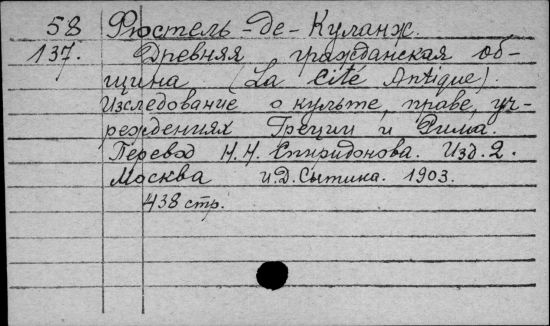 58 Фюстель-де-Куланж.
137. Древняя гражданская об-
щина (La Cité Antique).
Изследование о культе, праве, уч-
реждениях Греции и Рима.
Перевод Н.Н. Спиридонова. Изд. 2.
Москва И.Д. Сытина. 1903.
438 стр.